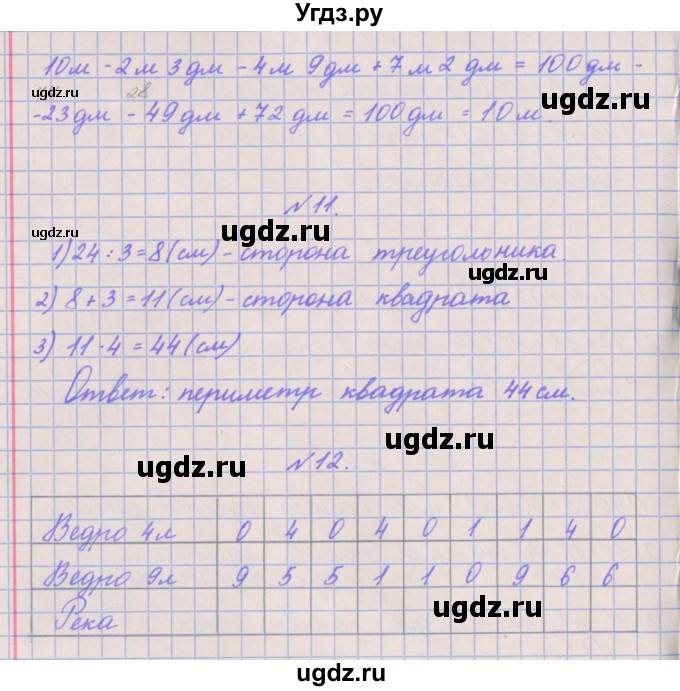 Угдз.ру
10м - 2м 3дм - 4м 9дм + 7м 2 дм = 100дм -
ugdz.ru 28 ugdz.ru ugdz.ru
- 23дм - 49дм + 72 дм = 100дм = 10м.
N 11.
ugdz.ru ugdz.ru
1) 24 : 3 = 8 (см) - сторона треугольника.
ugdz.ru
2) 8 + 3 = 11 (см) - сторона квадрата
3) 11 · 4 = 44 (см)
Ответ: периметр квадрата 44 см.
ugdz.ru
ugdz.ru N 12.
Ведро 4л 0 4 0 4 0 1 1 4 0
Ведро 9л 9 5 5 1 1 0 9 6 6
ugdz.ru
Река
ugdz.ru